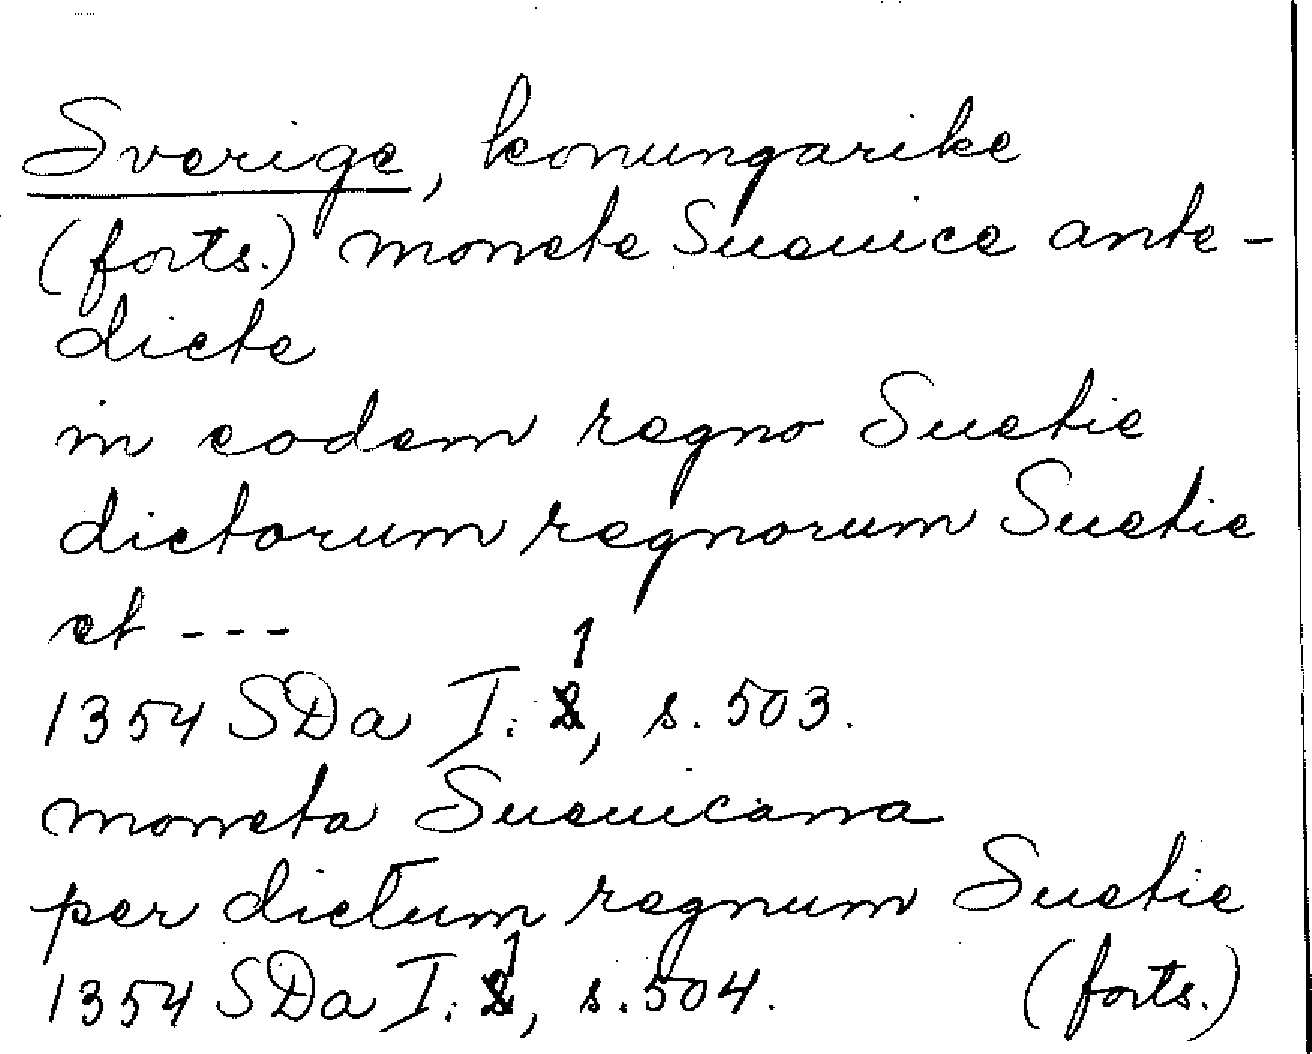 Sverige, konungarike
(forts.) monete Sueuice ante-
dicte
in eodem regno Suetie
dictorum regnorum Suetie
et ---
1354 SDa I: 1, s. 503.
moneta Sueuicana
per dictum regnum Suetie
1354 SDa I: 1, s. 504. (forts.)